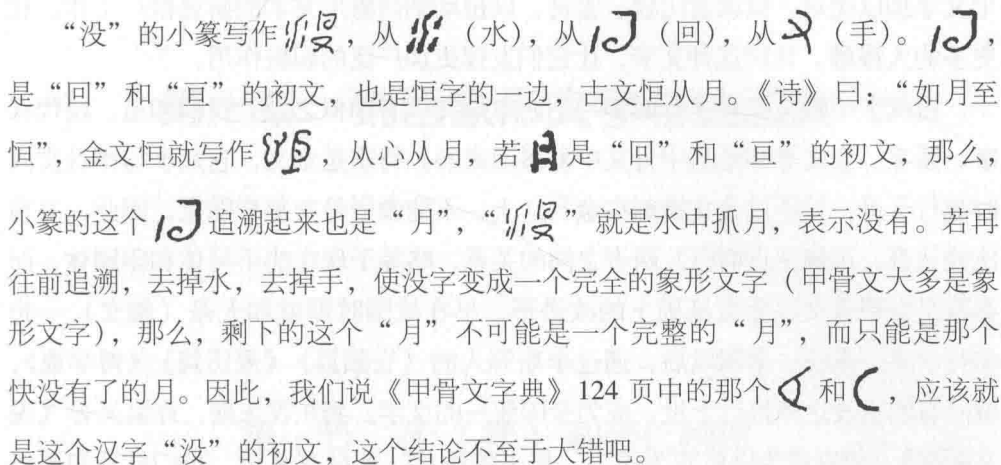 “没”的小篆写作，从（水），从（回），从（手）。，
是“回”和“亘”的初文，也是恒字的一边，古文恒从月。《诗》曰：“如月至
恒”，金文恒就写作，从心从月，若是“回”和“亘”的初文，那么，
小篆的这个追溯起来也是“月”，“”就是水中抓月，表示没有。若再
往前追溯，去掉水，去掉手，使没字变成一个完全的象形文字（甲骨文大多是象
形文字），那么，剩下的这个“月”不可能是一个完整的“月”，而只能是那个
快没有了的月。因此，我们说《甲骨文字典》124 页中的那个和，应该就
是这个汉字“没”的初文，这个结论不至于大错吧。